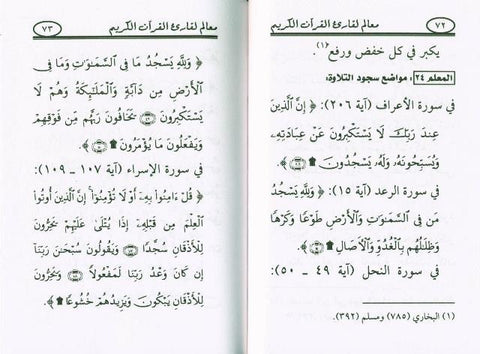 ٧٢
معالم لقارئ القرآن الكريم
يكبر في كل خفض ورفع(١).
المعلم ٢٤: مواضع سجود التلاوة:
في سورة الأعراف (آية ٢٠٦): ﴿ إِنَّ ٱلَّذِينَ
عِندَ رَبِّكَ لَا يَسْتَكْبِرُونَ عَنْ عِبَادَتِهِۦ
وَيُسَبِّحُونَهُۥ وَلَهُۥ يَسْجُدُونَ ۩ ﴾.
في سورة الرعد (آية ١٥): ﴿ وَلِلَّهِ يَسْجُدُ
مَن فِى ٱلسَّمَٰوَٰتِ وَٱلْأَرْضِ طَوْعًا وَكَرْهًا
وَظِلَٰلُهُم بِٱلْغُدُوِّ وَٱلْءَاصَالِ ۩ ﴾.
في سورة النحل (آية ٤٩ ـ ٥٠):
(١) البخاري (٧٨٥) ومسلم (٣٩٢).
معالم لقارئ القرآن الكريم
٧٣
﴿ وَلِلَّهِ يَسْجُدُ مَا فِى ٱلسَّمَٰوَٰتِ وَمَا فِى
ٱلْأَرْضِ مِن دَآبَّةٍ وَٱلْمَلَٰٓئِكَةُ وَهُمْ لَا
يَسْتَكْبِرُونَ ﴿٤٩﴾ يَخَافُونَ رَبَّهُم مِّن فَوْقِهِمْ
وَيَفْعَلُونَ مَا يُؤْمَرُونَ ۩ ﴾.
في سورة الإسراء (آية ١٠٧ ـ ١٠٩):
﴿ قُلْ ءَامِنُوا۟ بِهِۦٓ أَوْ لَا تُؤْمِنُوٓا۟ إِنَّ ٱلَّذِينَ أُوتُوا۟
ٱلْعِلْمَ مِن قَبْلِهِۦٓ إِذَا يُتْلَىٰ عَلَيْهِمْ يَخِرُّونَ
لِلْأَذْقَانِ سُجَّدًا ﴿١٠٧﴾ وَيَقُولُونَ سُبْحَٰنَ رَبِّنَآ
إِن كَانَ وَعْدُ رَبِّنَا لَمَفْعُولًا ﴿١٠٨﴾ وَيَخِرُّونَ
لِلْأَذْقَانِ يَبْكُونَ وَيَزِيدُهُمْ خُشُوعًا ۩ ﴾.